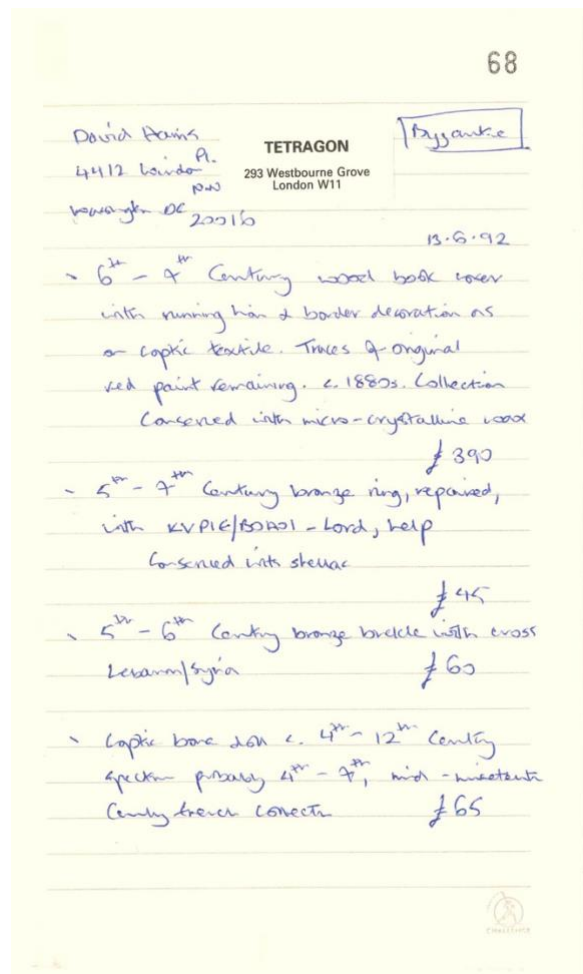 68
David Harris
TETRAGON
Byzantine
4412 Pl.
293 Westbourne Grove
NW
London W11
DC 20016
13.6.92
- 6th - 7th Century wood book cover
with running lion & border decoration as
on coptic textile. Traces of original
red paint remaining. c. 1880s. Collection
Conserved with micro-crystalline wax
£390
- 5th - 7th Century bronze ring, repaired,
with KVPIE/BOHΘI - Lord, help
Conserved with shellac
£45
- 5th - 6th Century bronze buckle with cross
Lebanon/Syria £60
- Coptic bone doll c. 4th - 12th Century
probably 4th - 7th, mid - nineteenth
Century french collection £65
CHALLENGE